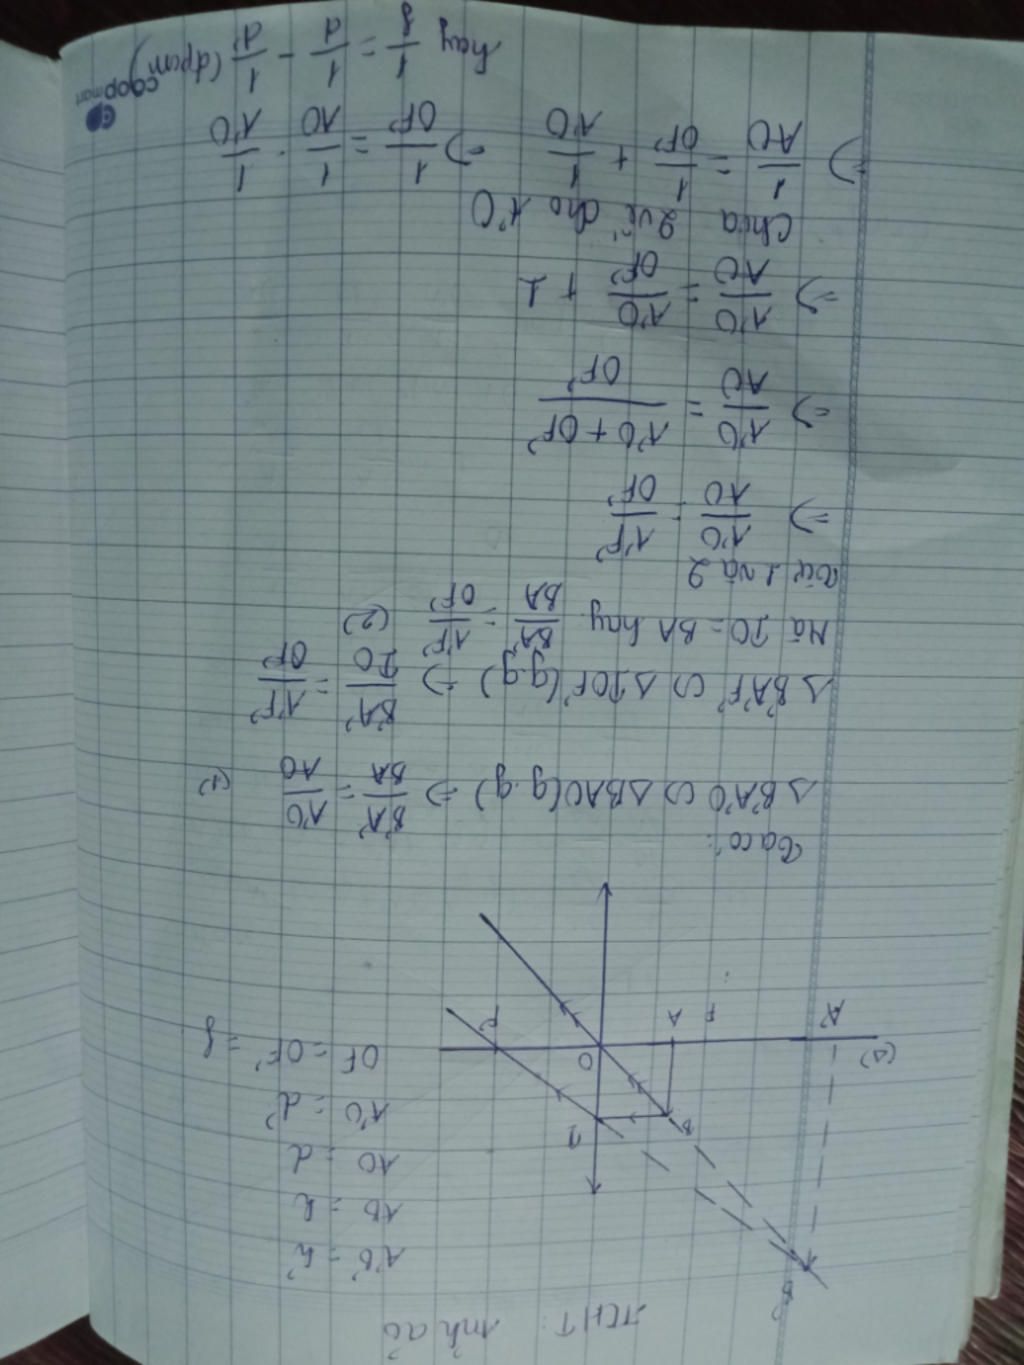 TKHT: Ảnh ảo
A'B' = h'
AB = h
AO = d
A'O = d'
OF = OF' = f
B'
B
I
(Δ) A' F A O F'
Ta có:
Δ B'A'O ∽ Δ BAO (g.g) ⇒ B'A'/BA = A'O/AO (1)
Δ B'A'F' ∽ Δ IOF' (g.g) ⇒ B'A'/IO = A'F'/OF'
Mà IO = BA hay B'A'/BA = A'F'/OF' (2)
Từ 1 và 2
⇒ A'O/AO = A'F'/OF'
⇒ A'O/AO = A'O + OF'/OF'
⇒ A'O/AO = A'O/OF' + 1
Chia 2 vế cho A'O
⇒ 1/AO = 1/OF' + 1/A'O ⇒ 1/OF' = 1/AO - 1/A'O
hay 1/f = 1/d - 1/d' (đpcm)
coopmart